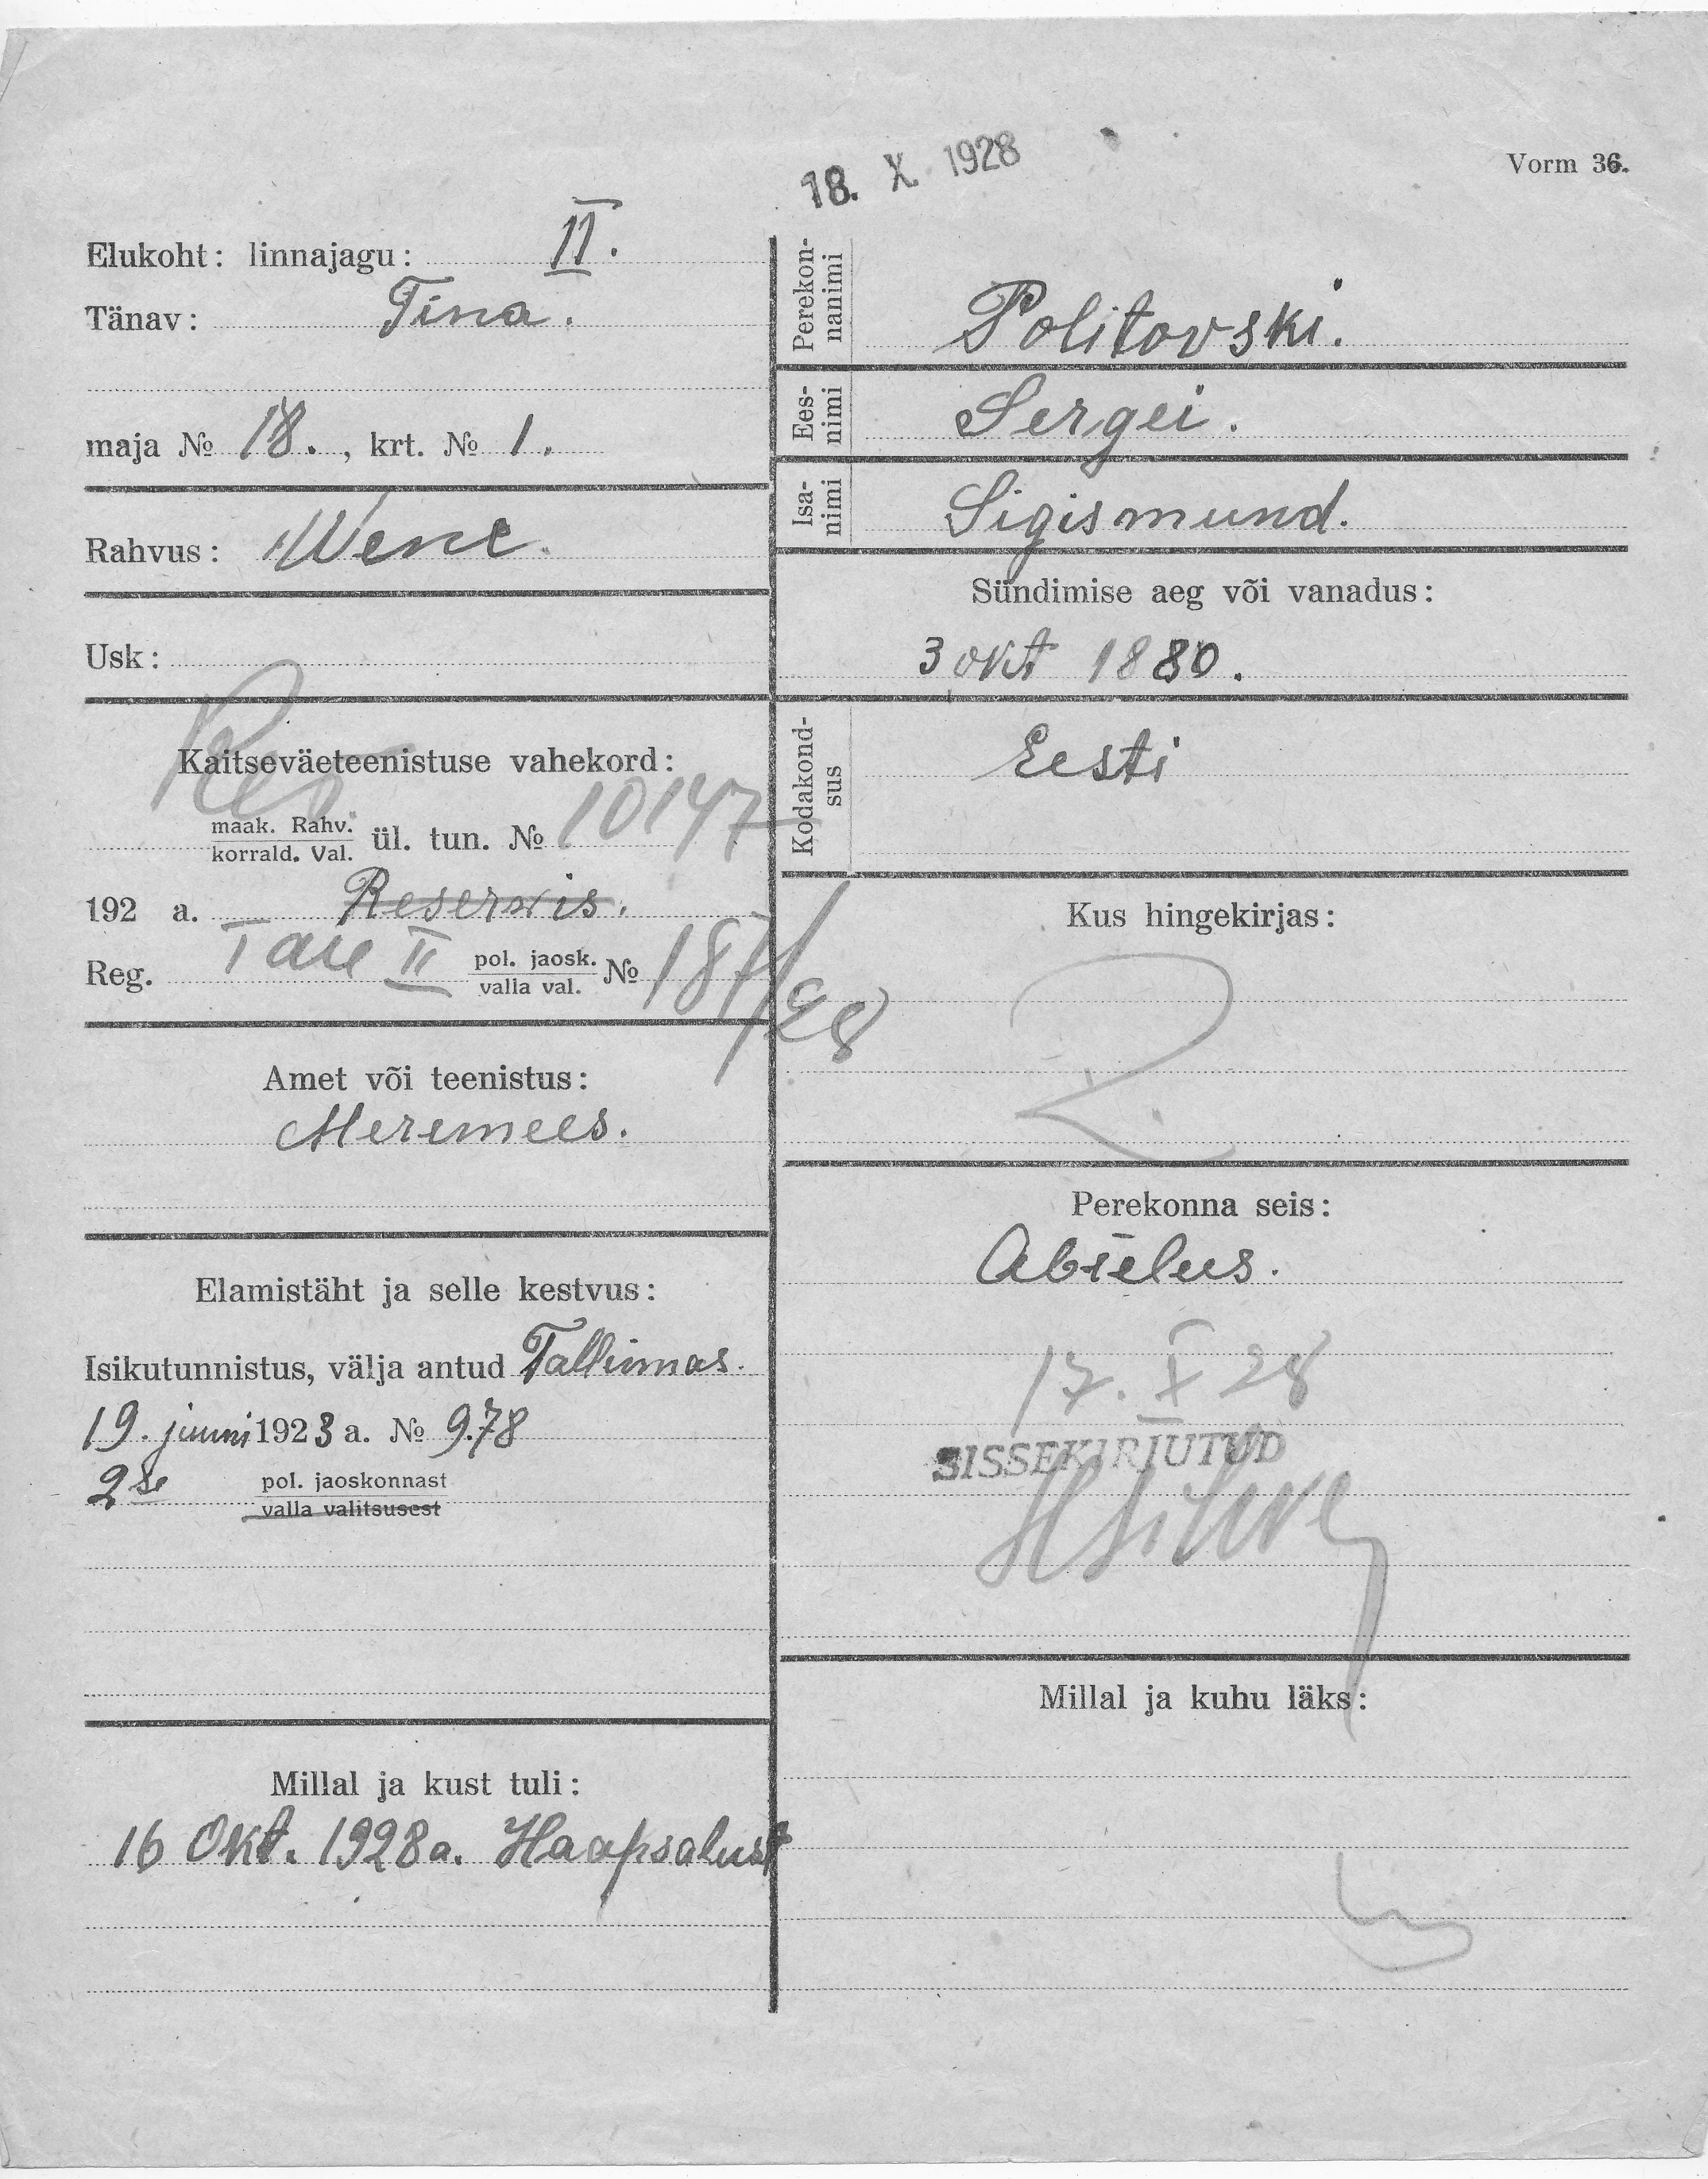 18. X 1928
Vorm 36.
Elukoht: linnajagu: II.
Tänav: Tina.
maja № 18. , krt. № 1.
Rahvus: Wene.
Usk:
Res.
Kaitseväeteenistuse vahekord:
maak. Rahv.
korrald. Val. ül. tun. № 10147
192 a. Reservis.
Reg. II pol. jaosk.
valla val. № 187/28
Amet või teenistus:
Meremees.
Elamistäht ja selle kestvus:
Isikutunnistus, välja antud Tallinnas.
19. juuni 1923 a. № 978
2se pol. jaoskonnast
valla valitsusest
Millal ja kust tuli:
16 Okt. 1928 a. Haapsalust
Perekonnanimi Politovski.
Eesnimi Sergei.
Isanimi Sigismund.
Sündimise aeg või vanadus:
3 okt 1880.
Kodakondsus Eesti
Kus hingekirjas:
Perekonna seis:
Abielus.
17. X 28
SISSEKIRJUTUD
Millal ja kuhu läks: